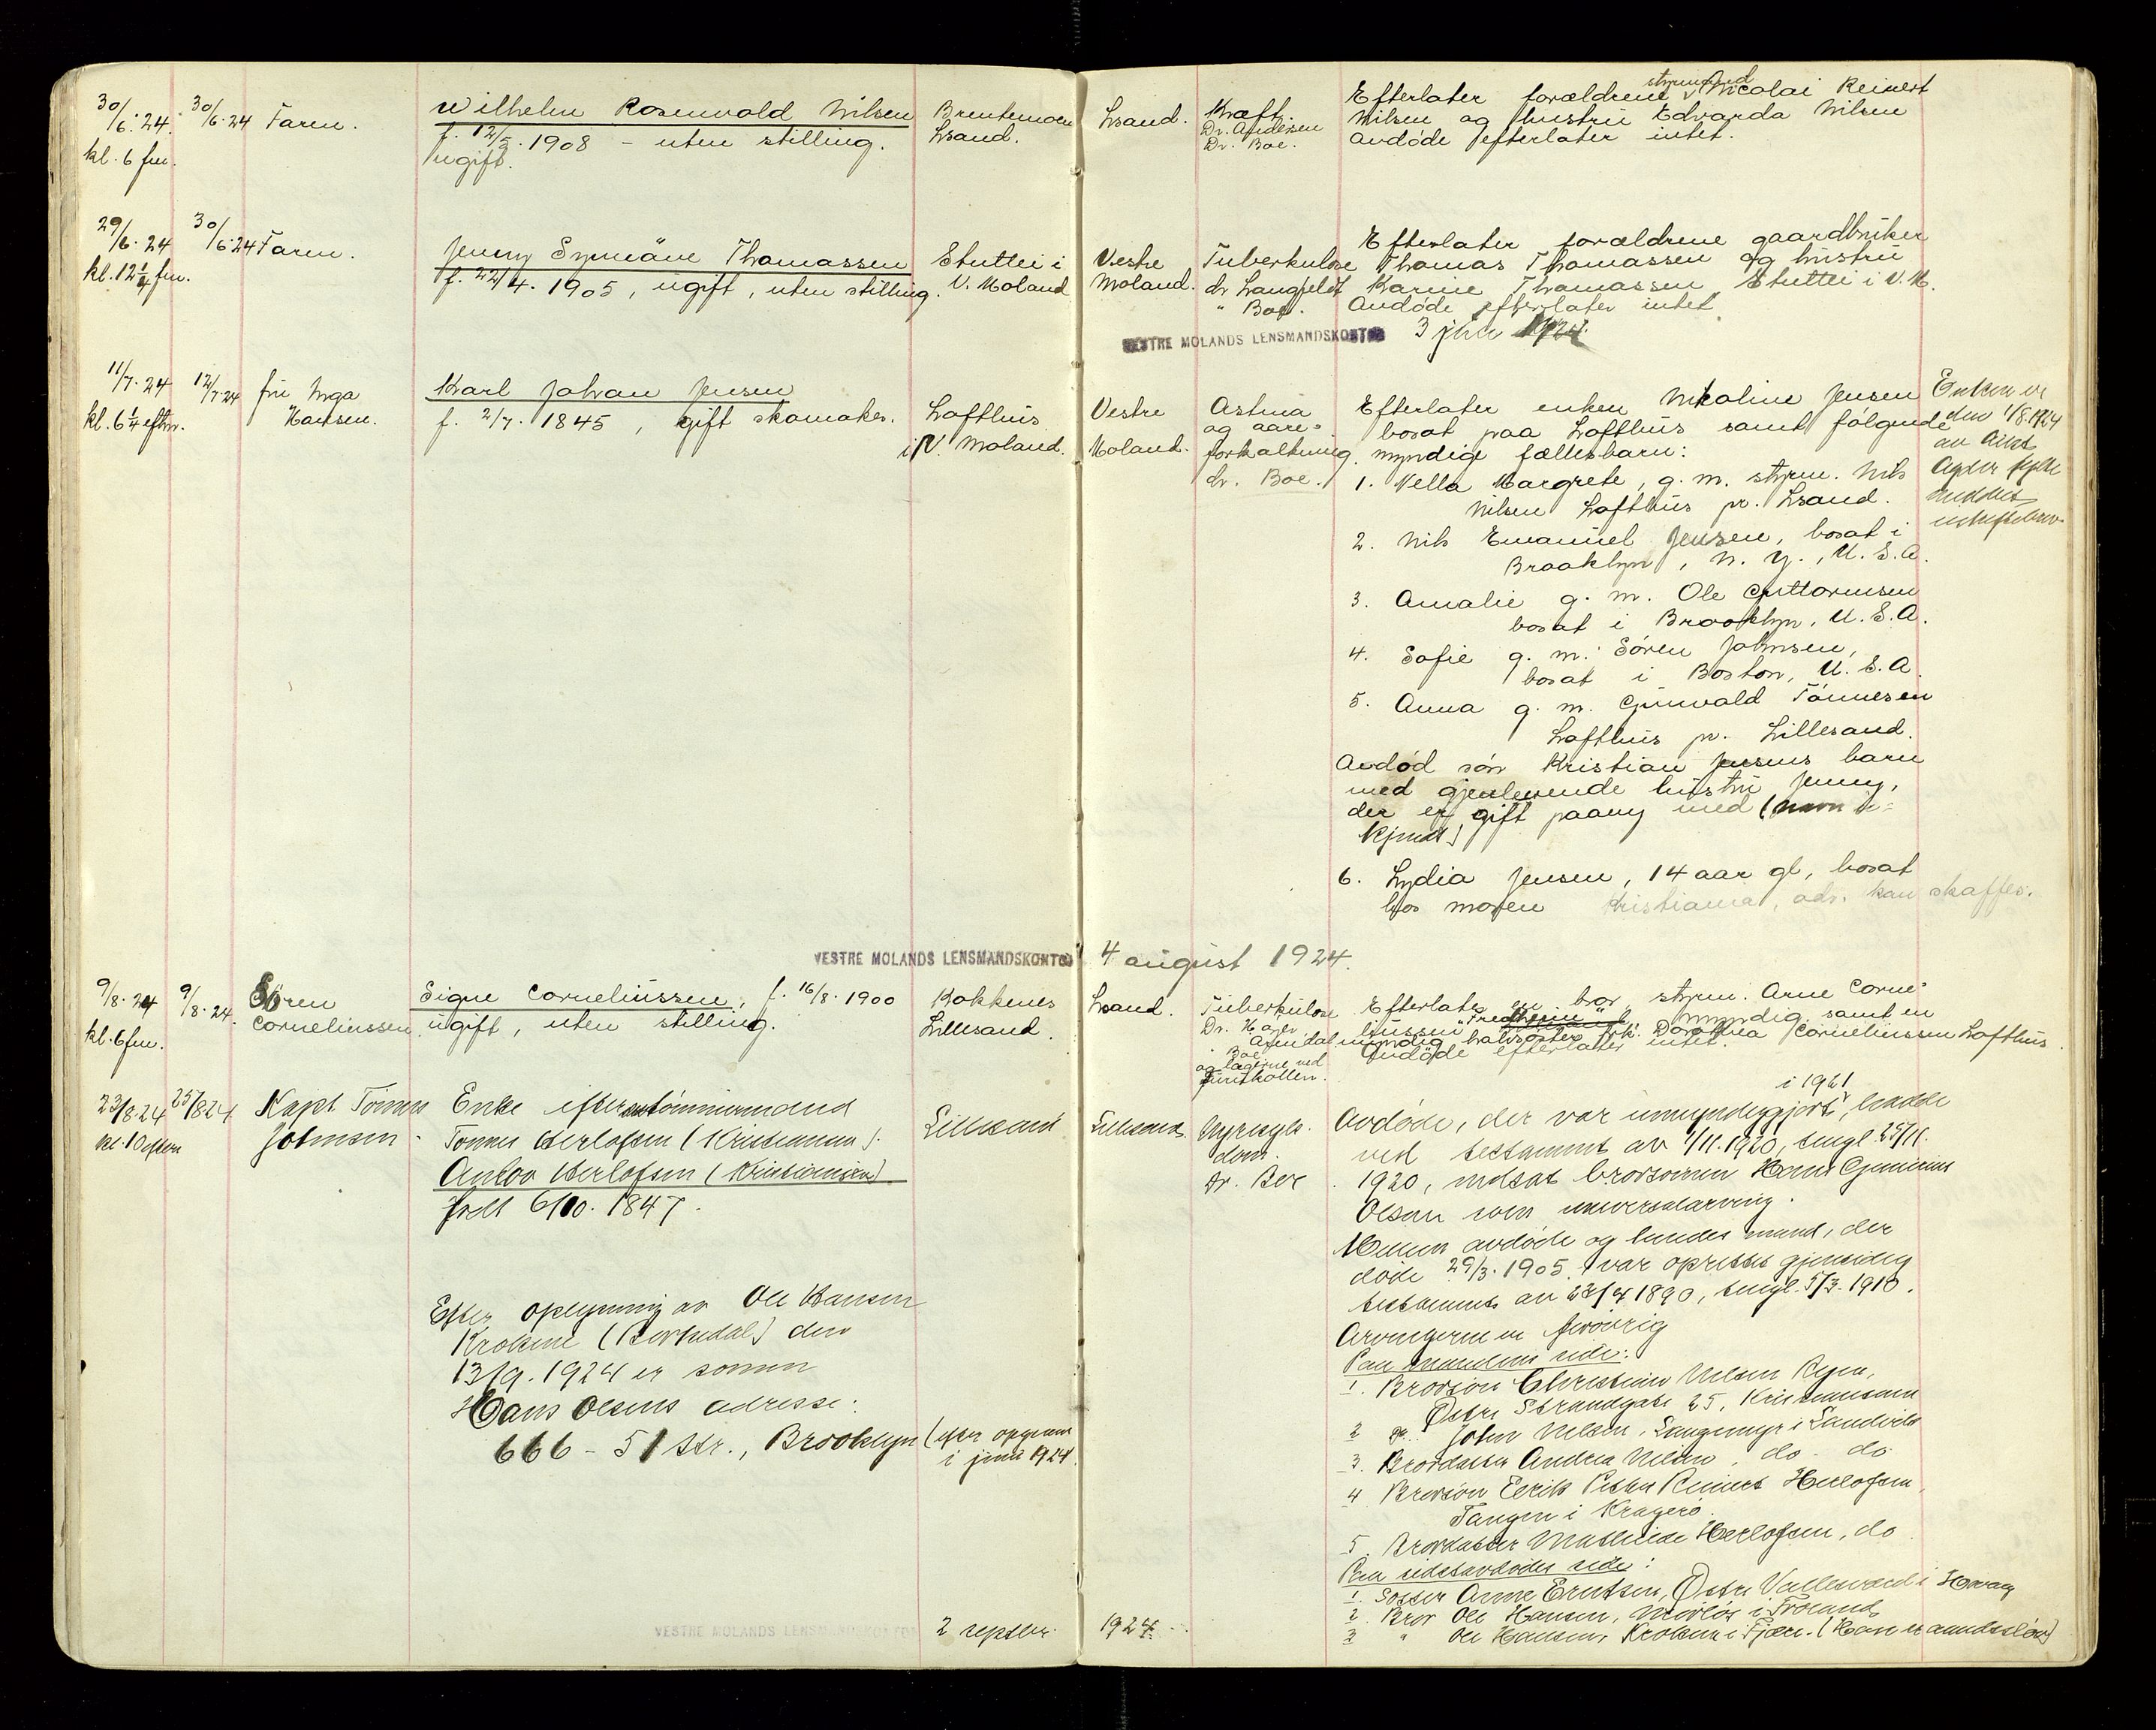 30/6.24.
kl. 6 fm.
30/6.24
Faren.
Wilhelm Rosenvold Nilsen
f. 12/3. 1908 – uten stilling.
ugift.
Brentemoen
Lsand.
Lsand.
Kræft.
Dr. Andersen
Dr. Boe.
Efterlater forældrene styrmand Nicolai Reinert
Nilsen og hustru Edvarda Nilsen
Avdøde efterlater intet.
29/6.24
kl. 12 1/4 fm.
30/6.24
Faren.
Jenny Synnäve Thomassen
f. 22/4. 1905, ugift, uten stilling.
Stuttei i
V. Moland
Vestre
Moland.
Tuberkulose
dr Langfeldt
" Boe.
Efterlater forældrene gaardbruker
Thomas Thomassen og hustru
Karine Thomassen Stuttei i V. M.
Avdøde efterlater intet.
VESTRE MOLANDS LENSMANDSKONTOR 3 juli 1924.
11/7.24
kl. 6 1/4 eftm.
12/7.24
fru Inga
Hansen.
Karl Johan Jensen
f. 2/7. 1845, gift skomaker.
Lofthus
i V. Moland.
Vestre
Moland.
Astma
og aare-
forkalkning.
dr. Boe.
Efterlater enken Nikoline Jensen
bosat paa Lofthus samt følgende
myndige fællesbarn:
1. Nella Margrete, g. m. styrm. Nils
Nilsen Lofthus pr. Lsand.
2. Nils Emanuel Jensen, bosat i
Brooklyn, N. Y., U. S. A.
3. Amalie g. m. Ole Guttormsen
bosat i Brooklyn, U. S. A.
4. Sofie g. m. Søren Johnsen,
bosat i Boston, U. S. A.
5. Anna g. m. Gunvald Tønnesen
Lofthus pr. Lillesand.
Avdød søn Kristian Jensens barn
med gjenlevende hustru Jenny,
der er gift paany med (navn u-
kjendt)
6. Lydia Jensen, 14 aar gl, bosat
hos moren Kristiania, adr. kan skaffes.
Enken er
den 1/8.1924
av Aust
Agder fylke
meddelt
uskiftebev.
VESTRE MOLANDS LENSMANDSKONTOR 4 august 1924.
9/8.24
kl. 6 fm.
9/8.24.
Søren
Corneliussen
Signe Corneliussen, f. 16/8. 1900
ugift, uten stilling.
Kokkenes
Lillesand.
Lsand.
Tuberkulose
Dr. Hayer
Arendal
" Boe
og lægerne ved
Furukollen.
Efterlater en bror, styrm. Arne Corne-
liussen myndig samt en
myndig halvsøster frk. Dorothea Corneliussen Lofthus.
Avdøde efterlater intet.
23/8.24
kl. 10 eftm
25/8.24
Kapt. Tønnes
Johnsen.
Enke efter tømmermand
Tønnes Herlofsen (Kristiansen).
Anlov Herlofsen (Kristiansen)
født 6/10. 1847.
Lillesand
Lillesand.
Nyresyk-
dom.
Dr. Boe
Avdøde, der var umyndiggjort i 1921, hadde
ved testament av 1/11. 1920, tingl. 25/11.
1920, indsat brorsønnen Hans Gunnius
Olsen som universalarving.
Mellem avdøde og hendes mand, der
døde 29/3. 1905, var oprettet gjensidig
testament av 23/4 1890, tingl. 5/3. 1910.
Arvingerne er forøvrig
Paa mandens side:
1. Brorsøn Christian Nilsen
Østre Strandgate 25, Kristianssand
2 do. John Nilsen, Langemyr i Landvik
3. Brordatter Andrea Nilsen, do – do
4 Brorsøn Eerik Peter Reinert Herlofsen,
Tangen i Kragerø.
5. Brordatter Mathilde Herlofsen, do
Paa sidstavdødes side:
1. Søster Anne Erntsen, Østre Vallesverd i Høvaag
2. Bror Ole Hansen, i Froland
3 " Ole Hansen, Krokene i Fjære. (Han er aandssløv)
Efter oplysning av Ole Hansen
Krokene den
13/9. 1924 er sønnen
Hans Olsens adresse:
666 – 51 Str., Brooklyn (efter opgave
i juni 1924
VESTRE MOLANDS LENSMANDSKONTOR 2 septbr. 1924.